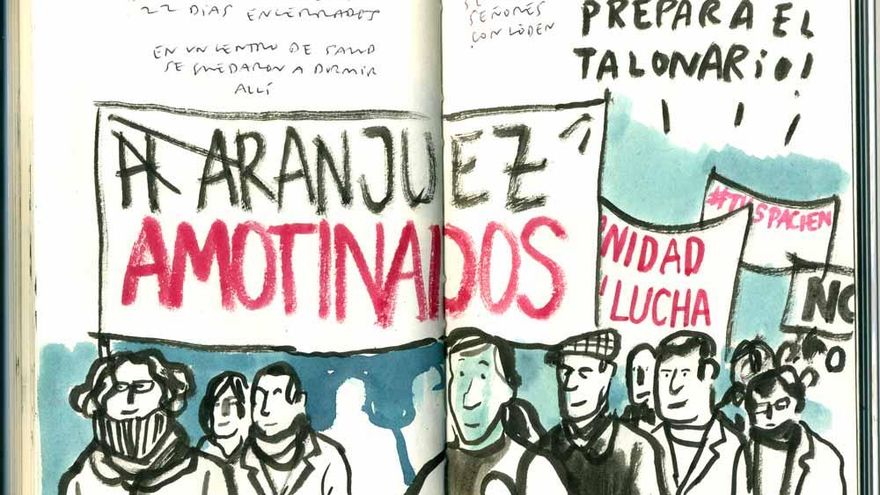 22 DÍAS ENCERRADOS
EN UN CENTRO DE SALUD
SE QUEDARON A DORMIR
ALLÍ
SEÑORES
CON LÓDEN
PREPARA EL
TALONARiO!
ARANJUEZ
AMOTINADOS
#TUSPACIEN
NIDAD
LUCHA
NO